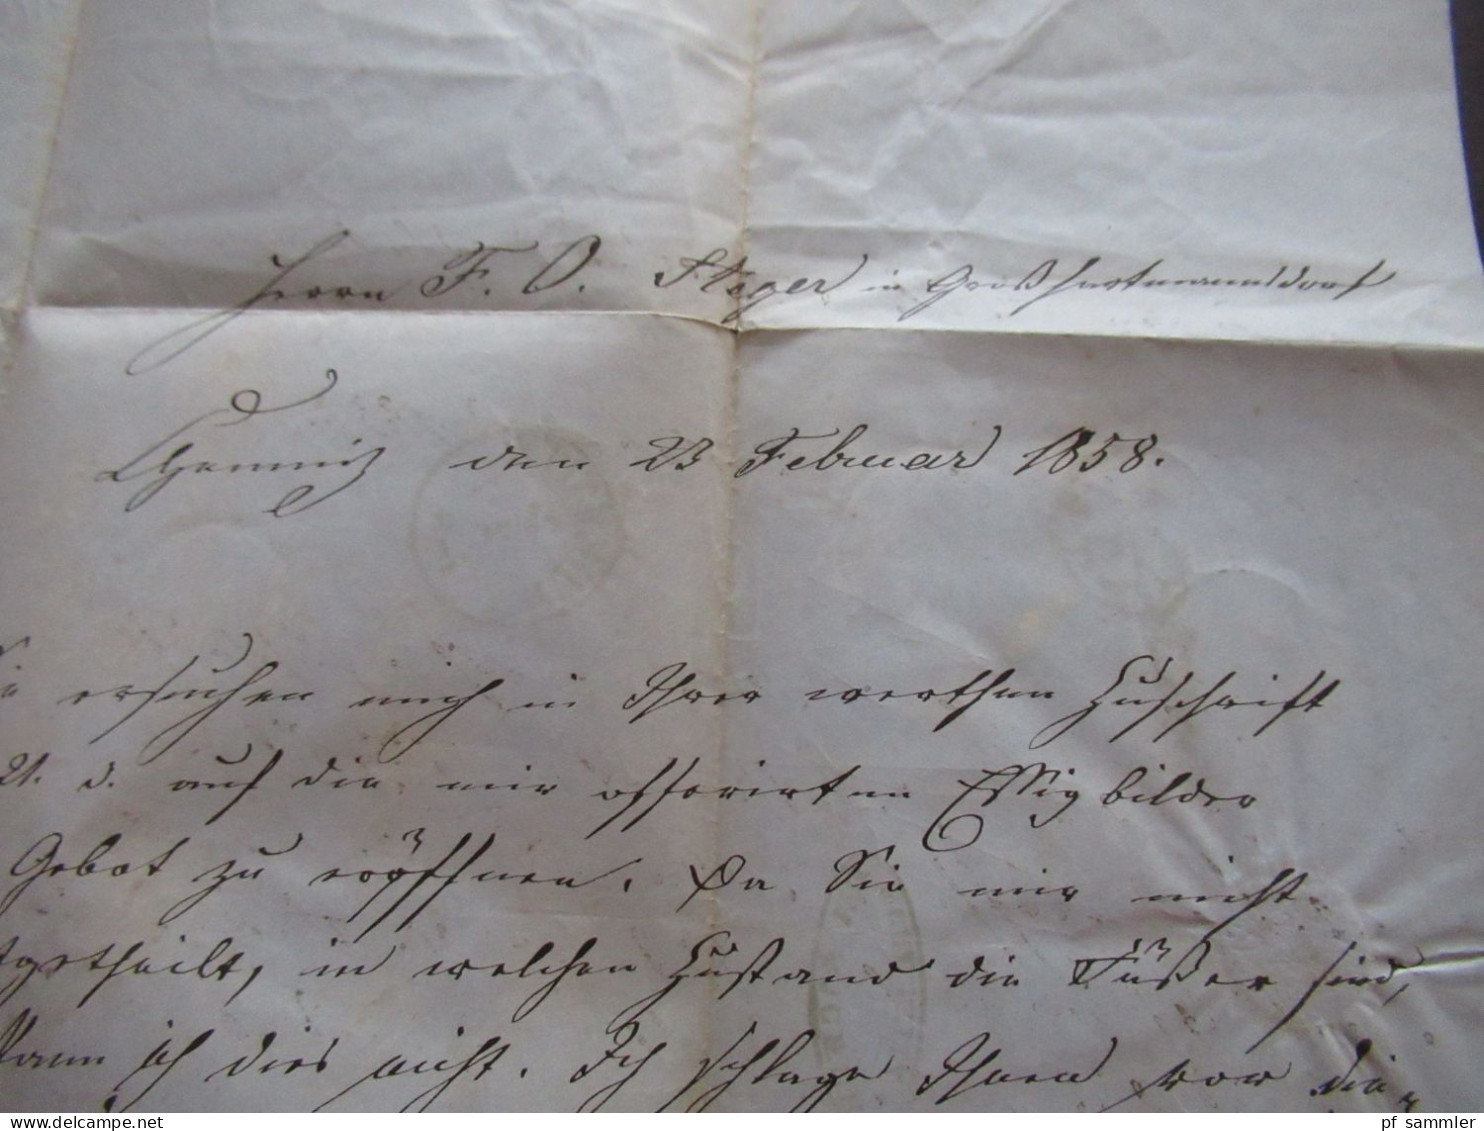 Herrn F. O. Steger in Großhartmannsdorf
Chemnitz den 23 Februar 1858.
Sie ersuchen mich in Ihrer werthen Zuschrift
21. d. auf die mir offerirten Essigbilder
Gebot zu eröffnen. Da Sie mir nicht
getheilt, in welchen Zustand die Fäßer sind,
kann ich dies nicht. Ich schlage Ihnen vor die
www.delcampe.net
pf_sammler